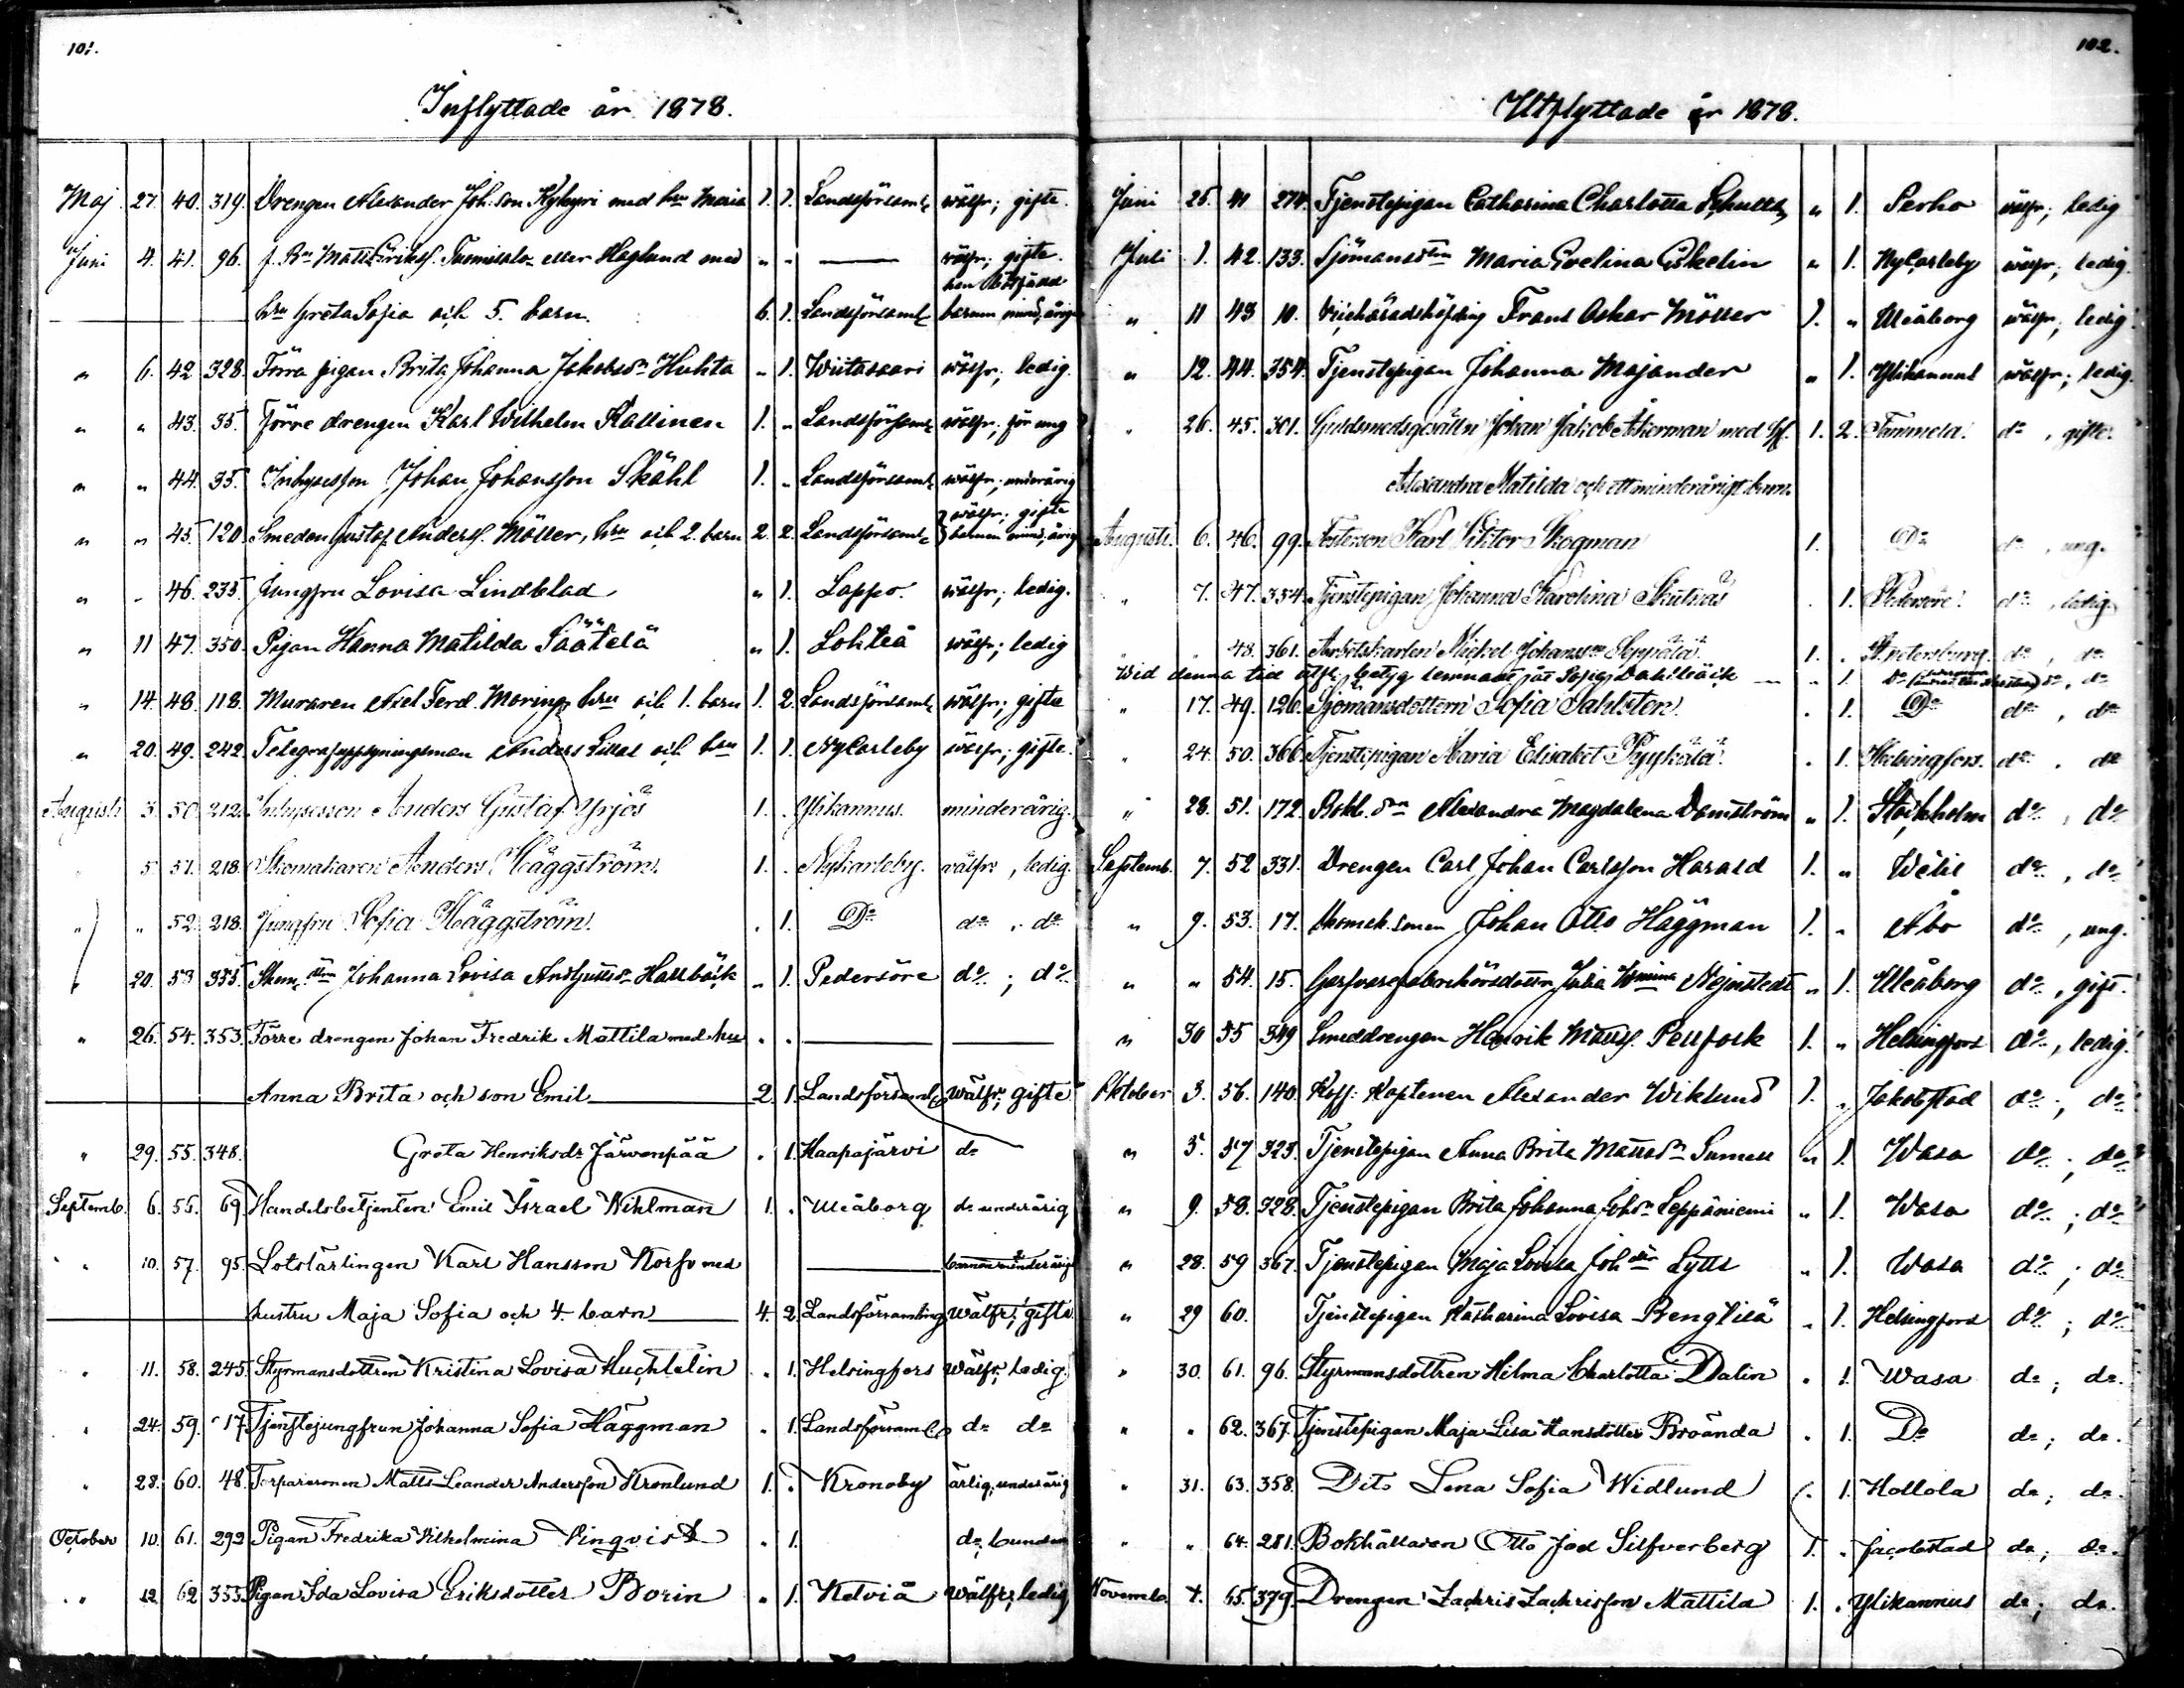 101.
Inflyttade år 1878.
Maj 27. 40. 319. Drengen Alexander Joh:son Kykyri med hu Maria 1. 1. Landsförsaml. wälfr; gifte.
Juni 4. 41. 96. f. Bn Matts Eriks. Tuomisalo eller Haglund med " " wälfr; gifte.
hu Greta Sofia och 5. barn. 6. 1. Landsförsaml. barnen mind.årige
" 6. 42. 328. Förra pigan Brita Johanna Jakobsdr Huhta " 1. Wiitasaari wälfr; ledig.
" " 43. 35. Förre drengen Karl Wilhelm Kallinen 1. " Landsförsaml. wälfr; för ung
" " 44. 35. Inhysesson Johan Johansson Skåhl 1. " Landsförsaml. wälfr; minderårig
" " 45. 120. Smeden Gustaf Anderss. Möller, hu och 2. barn 2. 2. Landsförsaml. wälfr; gifte barnen mind.årig
" " 46. 235. Jungfru Lovisa Lindblad " 1. Lappo. wälfr; ledig.
" 11 47. 350. Pigan Hanna Matilda Säätelä " 1. Lohteå wälfr; ledig
" 14. 48. 118. Muraren Axel Ferd. Moring, hu och 1. barn 1. 2. Landsförsaml. wälfr; gifte
" 20. 49. 242. Telegrafuppsyningsman Anders Sillal och hu 1. 1. NyCarleby wälfr; gifte.
Augusti 3. 50. 212. Inhysesson Anders Gustaf Yrjös 1. . Ylikannus. minderårig.
" 5. 51. 218. Skomakaren Anders Häggström. 1. . Nykarleby. wälfr, ledig.
" " 52. 218. Jungfru Sofia Häggström. . 1. Do do, do
" 20. 53. 335. Skom. dtn Johanna Lovisa Hallbäck " 1. Pedersöre do; do
" 26. 54. 353. Förre drengen Johan Fredrik Mattila med hu . .
Anna Brita och son Emil 2. 1. Landsförsaml. wälfr; gifte
" 29. 55. 348. Greta Henriksdr Järvenpää . 1. Haapajärvi do
Septemb. 6. 56. 69. Handelsbetjenten Emil Israel Wihlman 1. . Uleåborg do underårig
" 10. 57. 95. Lotslärlingen Karl Hansson Korf med barnen minderårige
hustru Maja Sofia och 4. barn 4. 2. Landsförsamling wälfr; gifte
" 11. 58. 245. Styrmansdottren Kristina Lovisa Huchtelin . 1. Helsingfors wälfr; ledig.
" 24. 59. 17. Tjenstejungfrun Johanna Sofia Häggman . 1. Landsförsaml. do do
" 28. 60. 48. Torparesonen Matts Leander Andersson Kronlund 1. . Kronoby ärlig; underårig
October 10. 61. 292. Pigan Fredrika Vilhelmina Vinqvist " 1. do;
" 12. 62. 355. Pigan Ida Lovisa Eriksdotter Borin " 1. Kelviå wälfr; ledig
102.
Utflyttade år 1878.
Juni 25. 41. 274. Tjenstepigan Catharina Charlotta Schultz " 1. Perho wälfr; ledig
Juli 1. 42. 133. Sjömansdtrn Maria Evelina Eskelin " 1. NyCarleby wälfr; ledig.
" 11 43 10. Vicehäradshöfding Frans Oskar Möller 1. " Uleåborg wälfr; ledig.
" 12. 44. 354. Tjenstepigan Johanna Majander " 1. Ylikannus wälfr; ledig.
" 26. 45. 301. Guldsmedsgesälln Johan Jakob Åkerman med h. 1. 2. Tammela. do, gifte.
Alexandra Matilda och ett minderårigt barn.
Augusti. 6. 46. 99. Fosterson Karl Viktor Skogman 1. Do do, ung.
" 7. 47. 354. Tjenstepigan Johanna Karolina Skutnäs . 1. Pedersöre. do, ledig.
" " 48. 361. Arbetskarlen Mickel Johansson Seppälä. 1. . St. Petersburg. do, do
Wid denna tid utfl. betyg lemnadt för Sofia Dahlbäck " 1. do, do
" 17. 49. 126. Sjömansdottern Sofia Sahlsten. . 1. Do do, do
" 24. 50. 366. Tjenstepigan Maria Elisabet Pyykälä. . 1. Helsingfors. do, do
" 28. 51. 172. Bokh. dtn Alexandra Magdalena Damström " 1. Stockholm do, do
Septemb. 7. 52 331. Drengen Carl Johan Carlsson Harald 1. " Wetil do, do
" 9. 53. 17. Skomak.sonen Johan Otto Häggman 1. " Åbo do, ung.
" " 54. 15. Garfvarefabrikörsdottrn Julia Wmina Nejmstedt " 1. Uleåborg do, gift.
" 30 55 349 Smeddrengen Henrik Matss. Pellfolk 1. " Helsingfors do, ledig.
Oktober 3. 56. 140. Koff: Kaptenen Alexander Wiklund 1. " Jakobstad do; do
" 5. 57 323. Tjenstepigan Anna Brita Mattsdr Sumell " 1. Wasa do; do
" 9. 58. 328. Tjenstepigan Brita Johanna Johdr Leppäniemi " 1. Wasa do; do
" 28. 59 367. Tjenstepigan Maja Lovisa Joh dtr Lytts " 1. Wasa do; do
" 29 60. Tjenstepigan Katharina Lovisa Renglilä " 1. Helsingfors do; do
" 30. 61. 96. Styrmansdottren Hilma Charlotta Dalin " 1. Wasa do; do.
" " 62. 367. Tjenstepigan Maja Lisa Hansdotter Broända . 1. Do do; do.
" 31. 63. 358. Dito Lena Sofia Widlund . 1. Hollola do; do.
" " 64. 281. Bokhållaren Otto Joel Silfverberg 1. . Jacobstad do; do.
Novemb. 4. 65. 379. Drengen Zachris Zachrisson Mattila 1. . Ylikannus do; do.